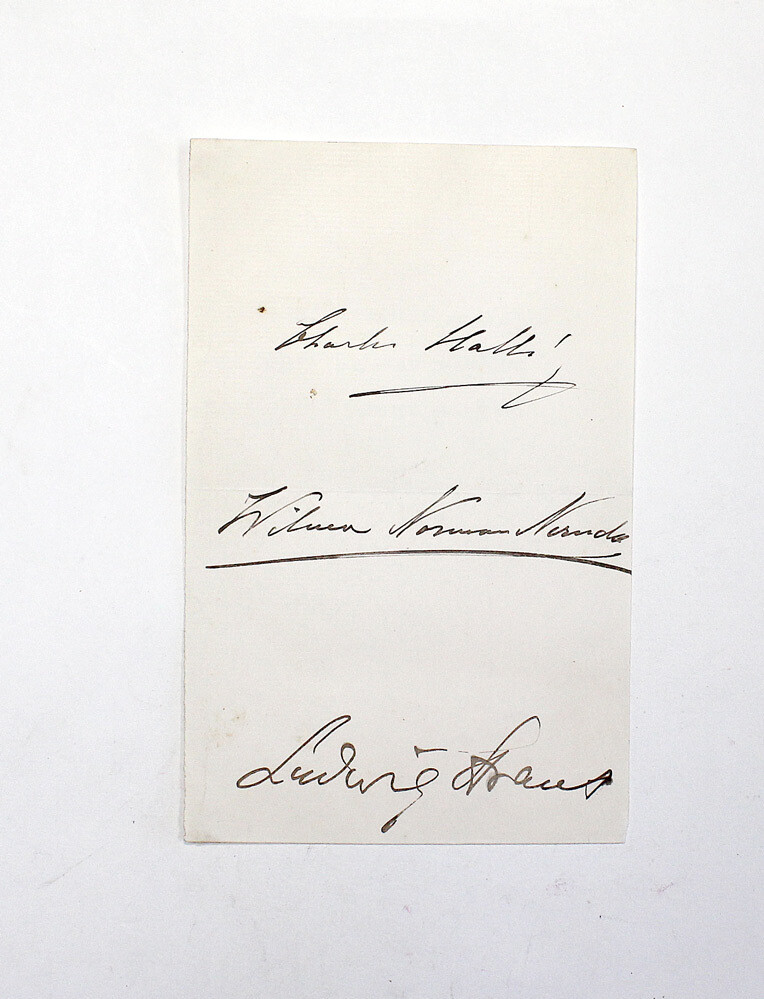 Charles Hallé
Wilma Norman Neruda
Ludwig Straus